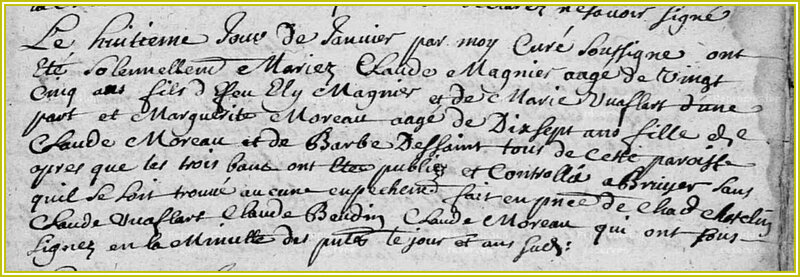 ne savoir signé
Le huitieme Jour De Janvier par moy Curé Soussigné ont
Eté solennellem Mariez Claude Magnier aagé de Vingt
Cinq ans fils d feu Ely Magnier et de Marie Vuaflart d'une
part et Marguerite Moreau aagé de Dixsept ans fille de
Claude Moreau et de Barbe Dessaint tous de cette paroisse
apres que les trois bans ont publiez et Controllé a sans
quil se soit trouvé aucune empechem fait en pnce de
Claude Vuaflart Claude Beudin Claude Moreau qui ont sous-
signez en la Minutte des le jour et ans susd: